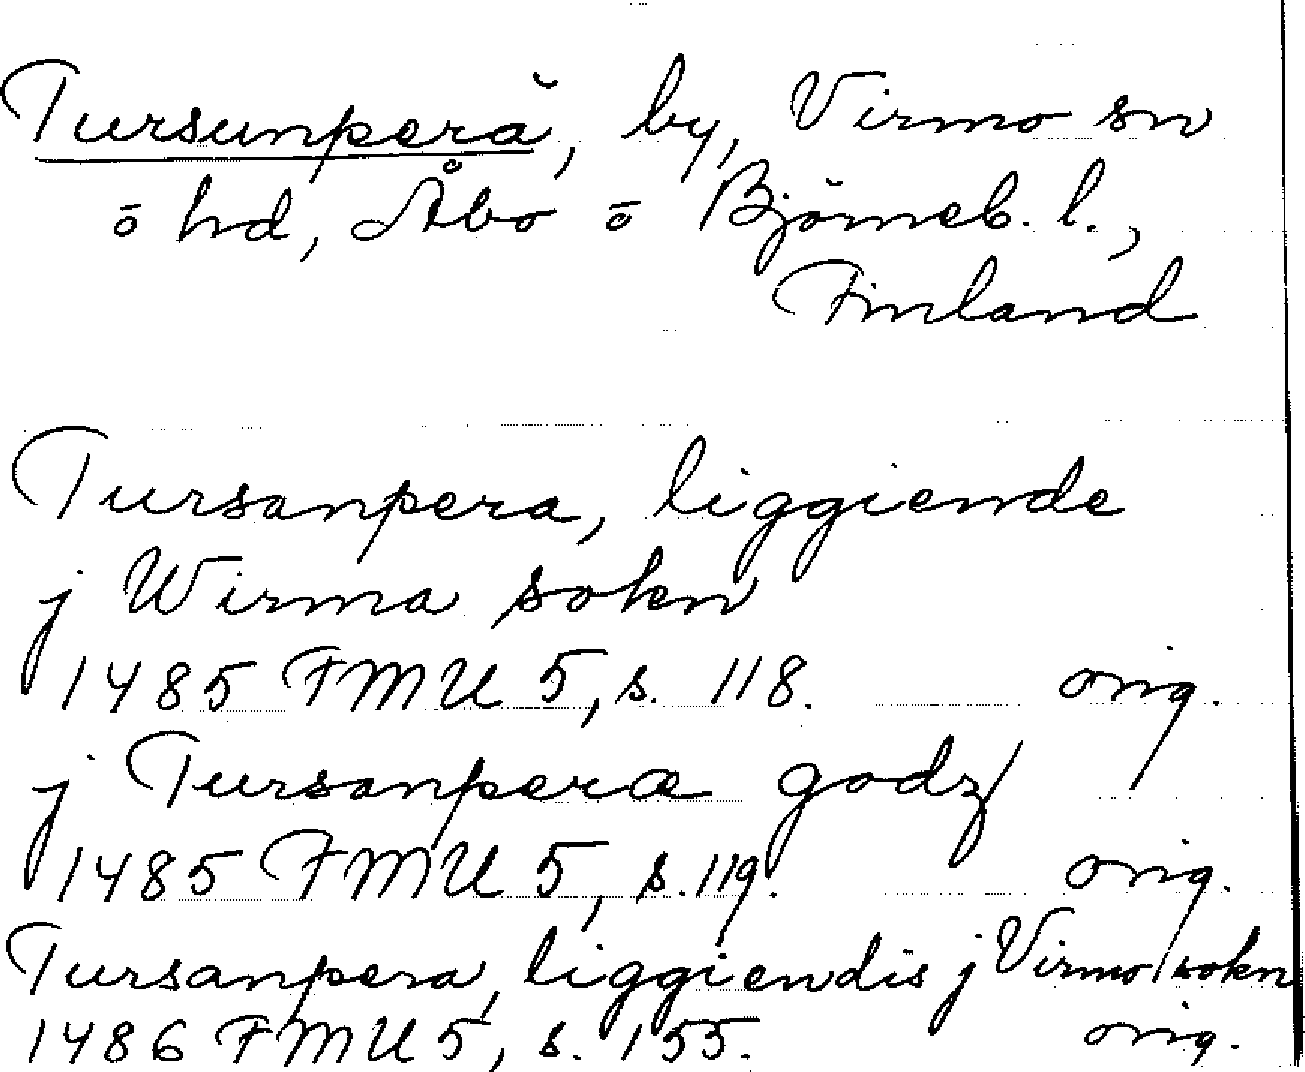 Tursunperä, by, Virmo sn
o hd, Åbo o Björneb. l.,
Finland
Tursanpera, liggiende
j Wirma sokn
1485 FMU 5, s. 118. orig.
j Tursanperæ godz
1485 FMU 5, s. 119. orig.
Tursanpera, liggiendis j Virmo sokn
1486 FMU 5, s. 155. orig.